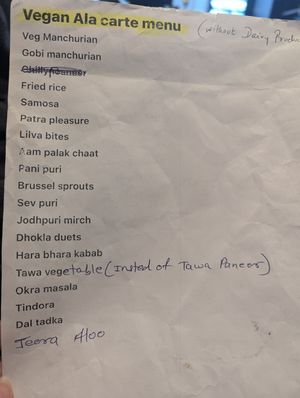 Vegan Ala carte menu (without Dairy Produc
Veg Manchurian
Gobi manchurian
Chillypaneer
Fried rice
Samosa
Patra pleasure
Lilva bites
Aam palak chaat
Pani puri
Brussel sprouts
Sev puri
Jodhpuri mirch
Dhokla duets
Hara bhara kabab
Tawa vegetable (Insted of Tawa Paneer)
Okra masala
Tindora
Dal tadka
Jeera Aloo